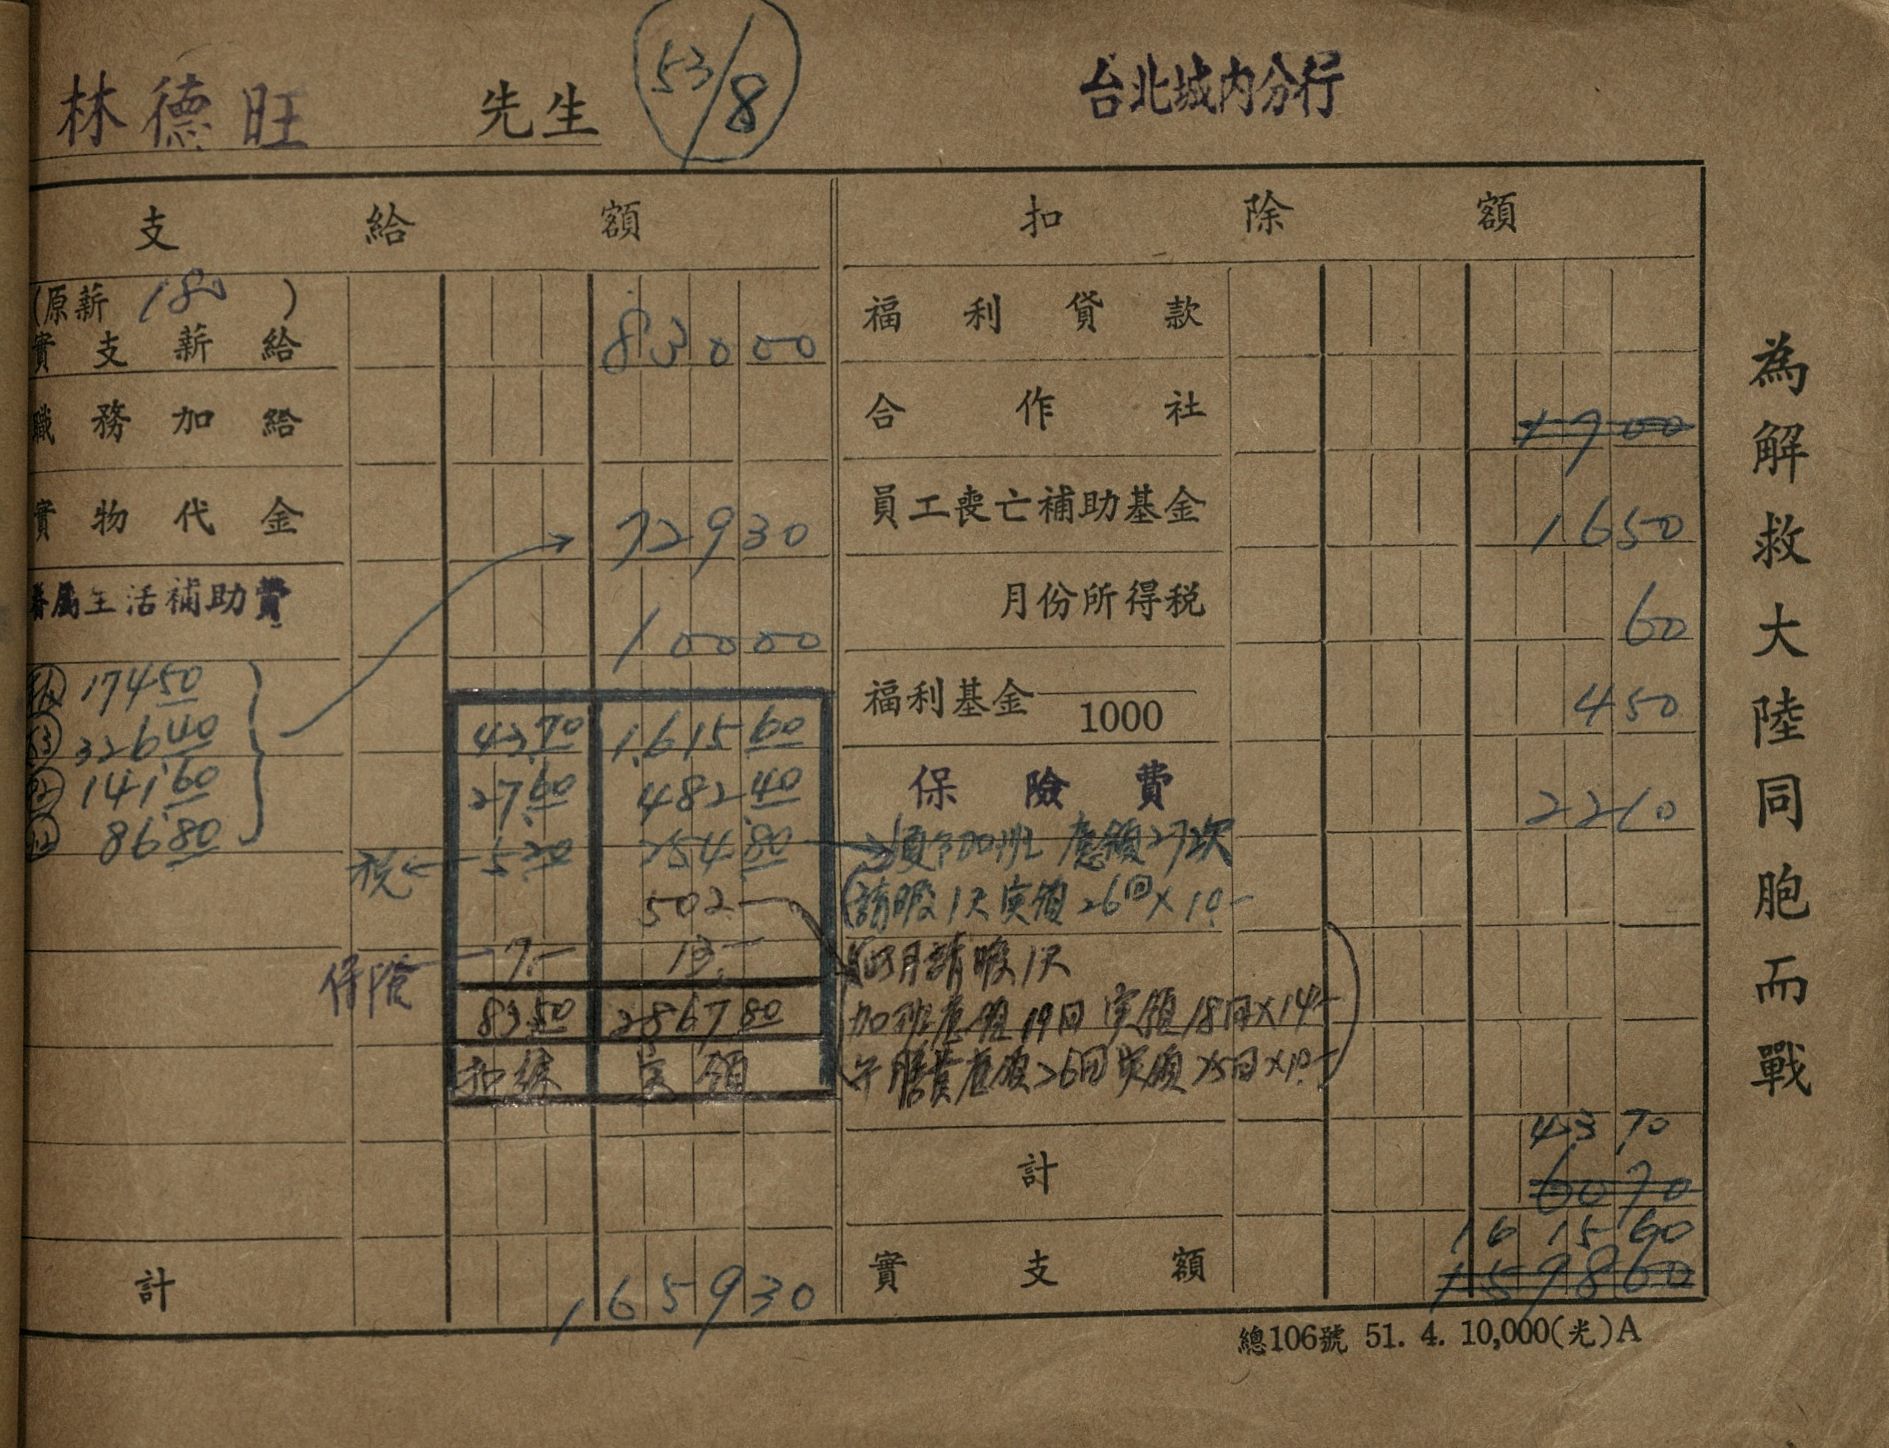 林德旺 先生 53/8 台北城內分行
支給額
(原薪 180 )
實支薪給 83000
職務加給
實物代金 72930
眷屬生活補助費 10000
17450
326.40
141.60
86.80
43.70 1,615.60
27.60 482.40
税 5.20 254.80
502.-
保險 7.- 13.-
83.50 2867.80
実領
計 165930
扣除額
福利貸款
合作社 1700
員工喪亡補助基金 1650
月份所得税 60
福利基金 1000 450
保險費 2210
應領27次
請暇1天実領26回×10.-
月請暇1天
加班應領19回 実領18回×14.-
午膳費應領26回実領25回×10.-
計 4370
6070
實支額 161560
159860
總106號 51. 4. 10,000(光)A
為解救大陸同胞而戰